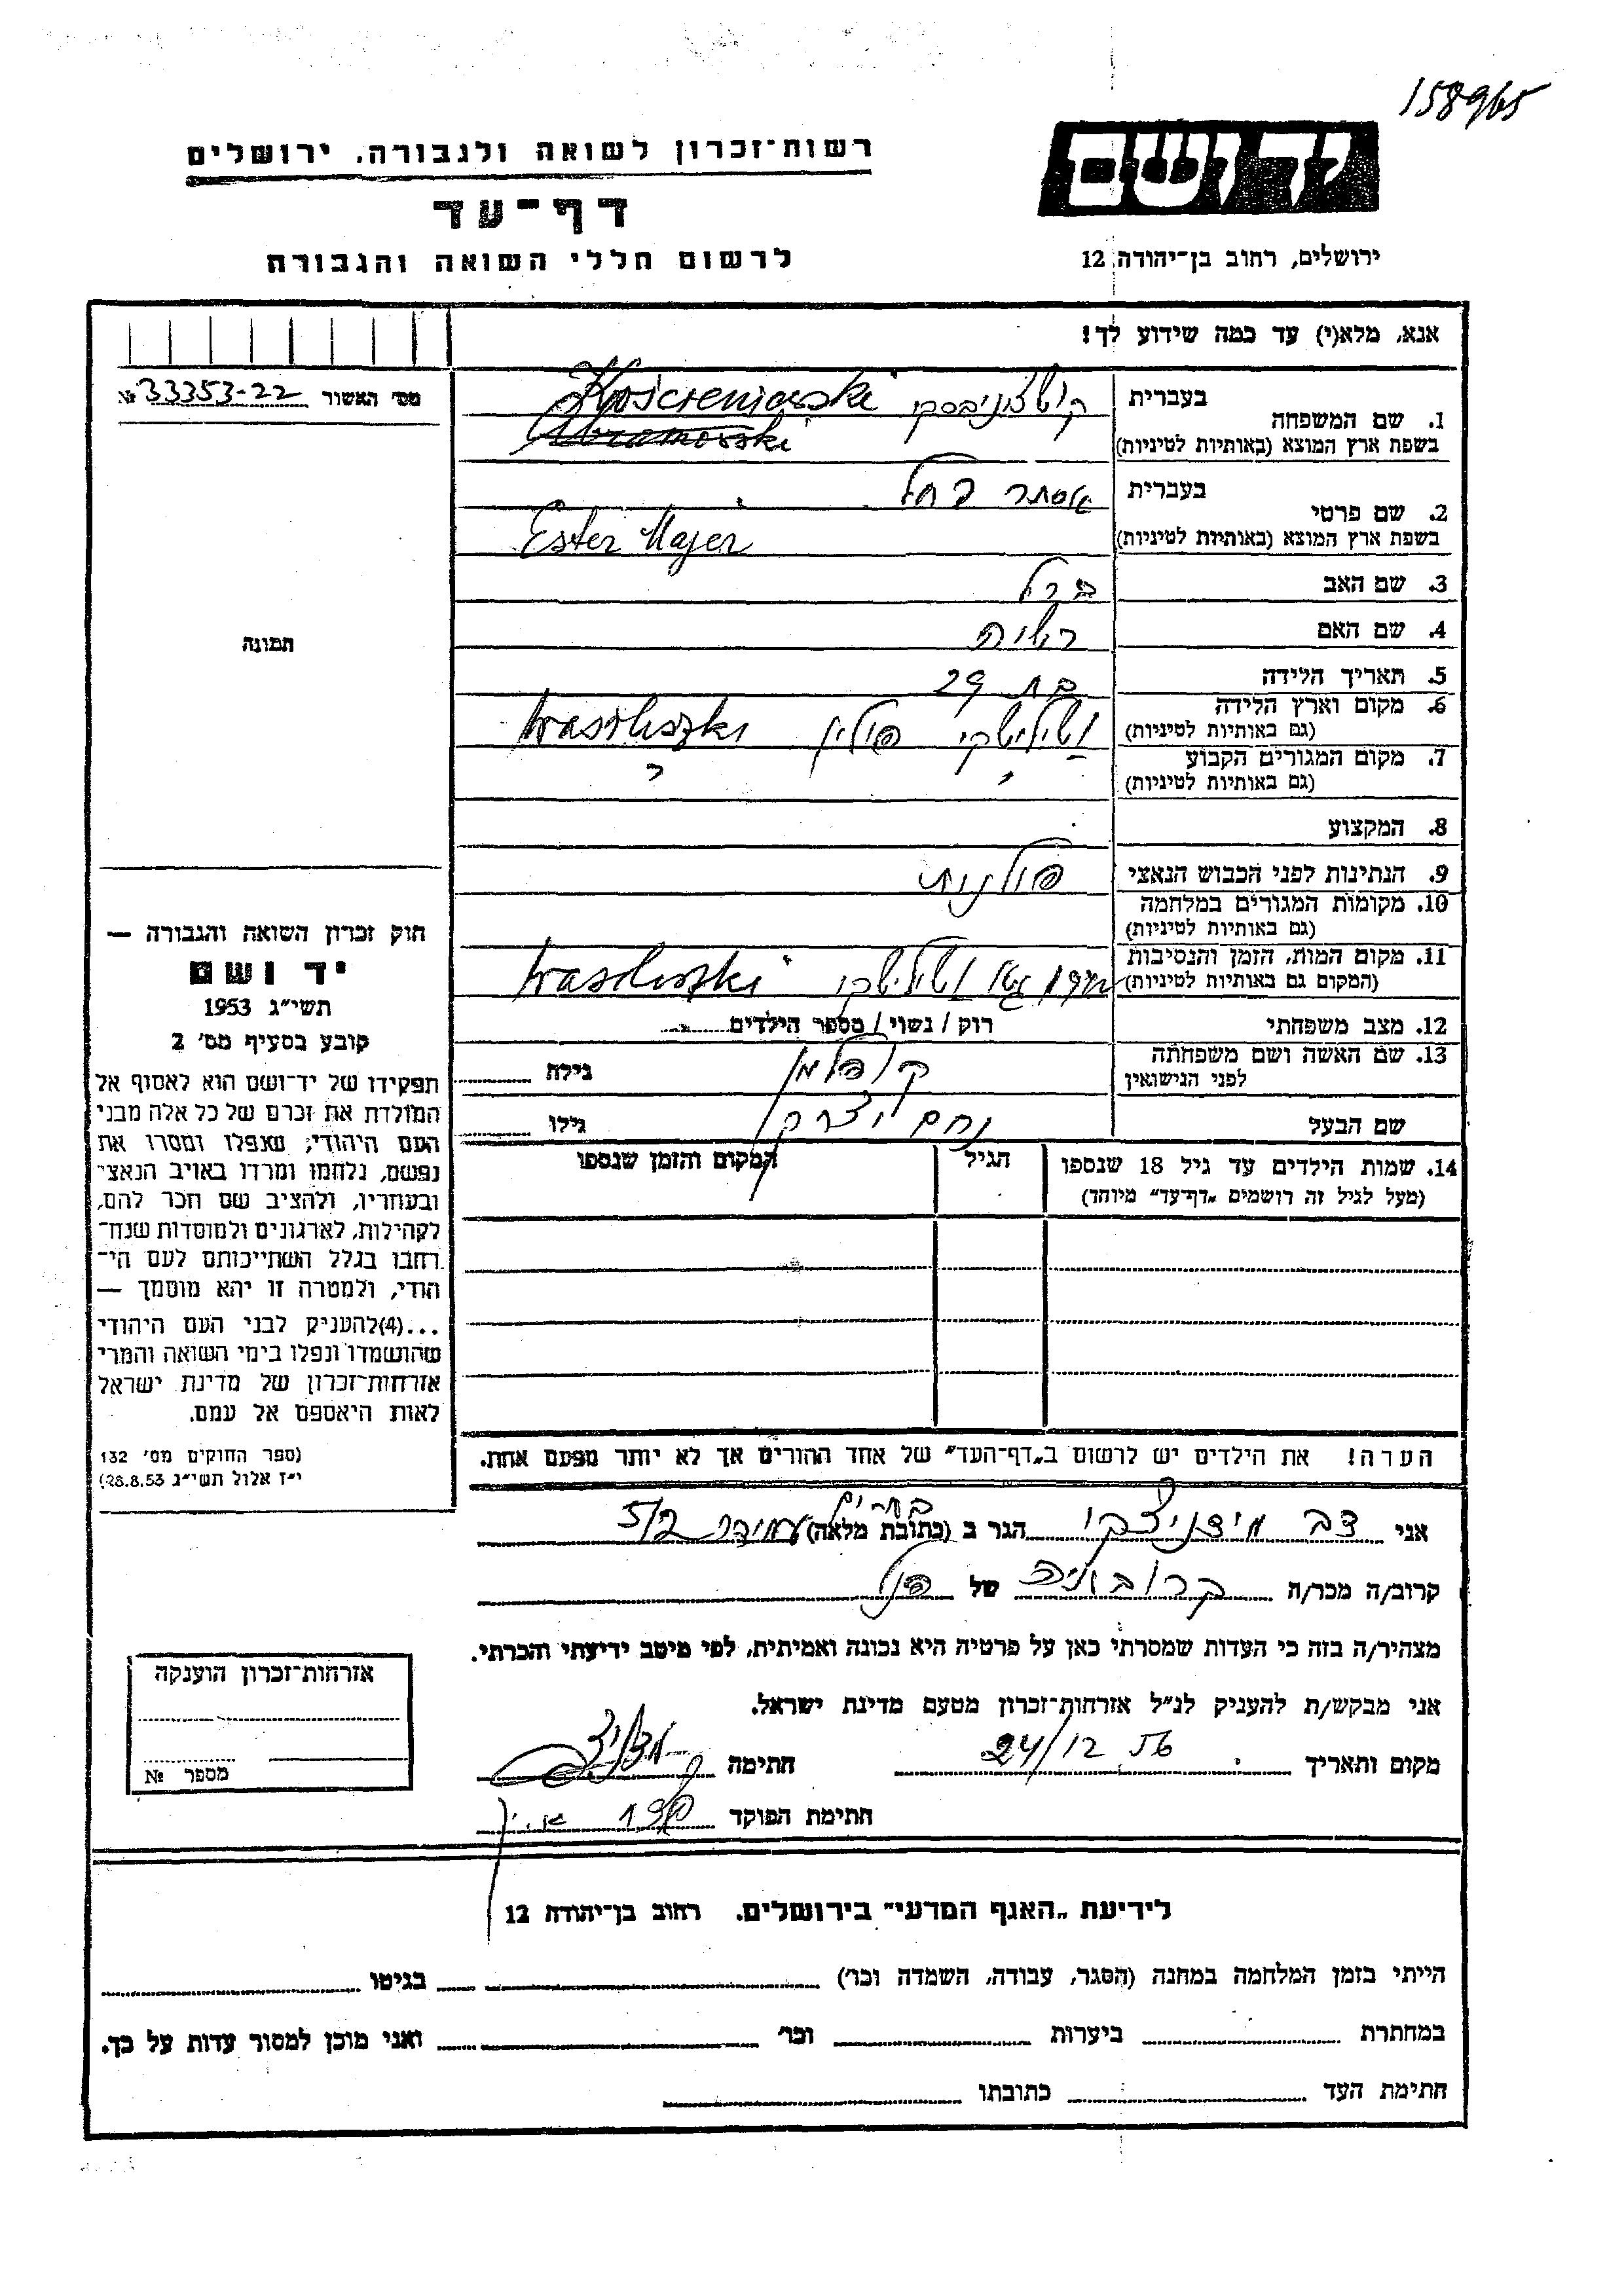 158965
יד ושם
רשות־זכרון לשואה ולגבורה, ירושלים
דף־עד
לרשום חללי השואה והגבורה
ירושלים, רחוב בן־יהודה 12
אנא, מלא(י) עד כמה שידוע לך!
מס׳ האשור 33353-22 №
תמונה
1. שם המשפחה
בעברית קושצניבסקי Kościeniewski
בשפת ארץ המוצא (באותיות לטיניות) Abramowski
2. שם פרטי
בעברית אסתר רחל
בשפת ארץ המוצא (באותיות לטיניות) Ester Majer
3. שם האב ברל
4. שם האם
5. תאריך הלידה בת 29
6. מקום וארץ הלידה
(גם באותיות לטיניות) ושילישקי פולין Wasiliszki
7. מקום המגורים הקבוע
(גם באותיות לטיניות)
8. המקצוע
9. הנתינות לפני הכבוש הנאצי פולנית
10. מקומות המגורים במלחמה
(גם באותיות לטיניות)
11. מקום המות, הזמן והנסיבות
(המקום גם באותיות לטיניות) גטו ושילישקי Wasiliszki
12. מצב משפחתי רוק / נשוי / מספר הילדים
13. שם האשה ושם משפחתה
לפני הנישואין קופלמן גילה
שם הבעל נחם יצחק גילו
14. שמות הילדים עד גיל 18 שנספו הגיל המקום והזמן שנספו
(מעל לגיל זה רושמים „דף־עד״ מיוחד)
חוק זכרון השואה והגבורה —
יד ושם
תשי״ג 1953
קובע בסעיף מס׳ 2
תפקידו של יד־ושם הוא לאסוף אל
המולדת את זכרם של כל אלה מבני
העם היהודי, שנפלו ומסרו את
נפשם, נלחמו ומרדו באויב הנאצי
ובעוזריו, ולהציב שם וזכר להם,
לקהילות, לארגונים ולמוסדות שנח־
רחבו בגלל השתייכותם לעם הי־
הודי, ולמטרה זו יהא מוסמך —
...(4)להעניק לבני העם היהודי
שהושמדו ונפלו בימי השואה והמרי
אזרחות־זכרון של מדינת ישראל
לאות היאספם אל עמם.
(ספר החוקים מס׳ 132
י״ז אלול תשי״ג 28.8.53)
הערה! את הילדים יש לרשום ב„דף־העד״ של אחד ההורים אך לא יותר מפעם אחת.
אני דב הגר ב (כתובת מלאה) 5/2
קרוב/ה מכר/ה של
מצהיר/ה בזה כי העדות שמסרתי כאן על פרטיה היא נכונה ואמיתית, לפי מיטב ידיעתי והכרתי.
אני מבקש/ת להעניק לנ״ל אזרחות־זכרון מטעם מדינת ישראל.
מקום ותאריך 24/12 חתימה
חתימת הפוקד
אזרחות־זכרון הוענקה
מספר №
לידיעת „האגף המדעי״ בירושלים. רחוב בן־יהודה 12
הייתי בזמן המלחמה במחנה (הסגר, עבודה, השמדה וכו׳) בגיטו
במחתרת ביערות וכו׳ ואני מוכן למסור עדות על כך.
חתימת העד כתובתו